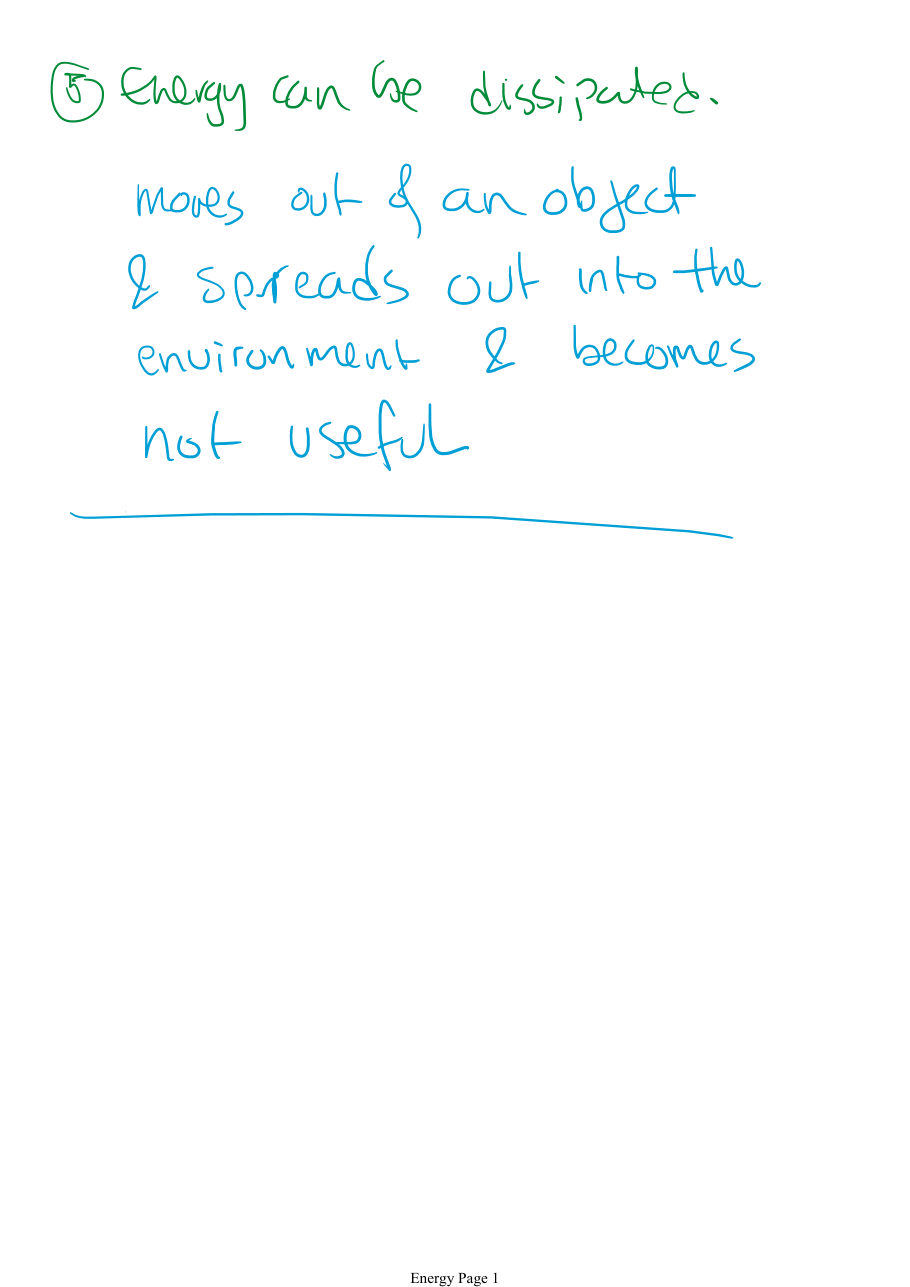 ⑤ Energy can be dissipated.
moves out of an object
& spreads out into the
environment & becomes
not useful
Energy Page 1